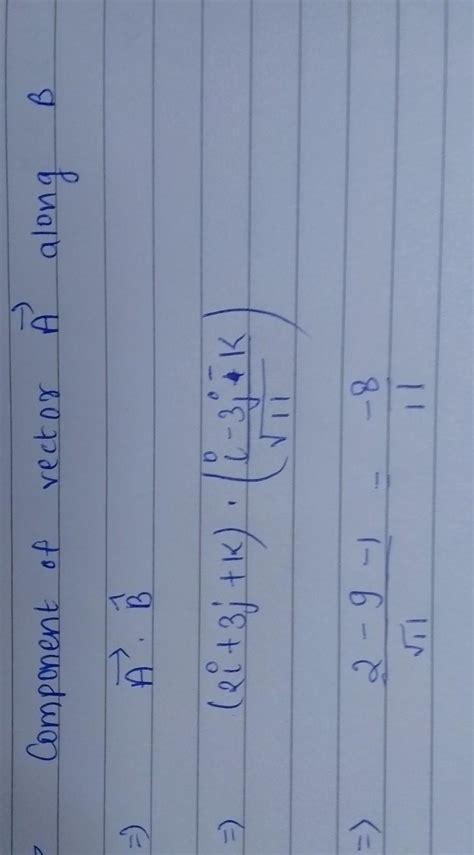 Component of vector A⃗ along B
=> A⃗ . B⃗
=> (2i + 3j + k) . ((i - 3j - k)/√11)
=> (2 - 9 - 1)/√11 = -8/11